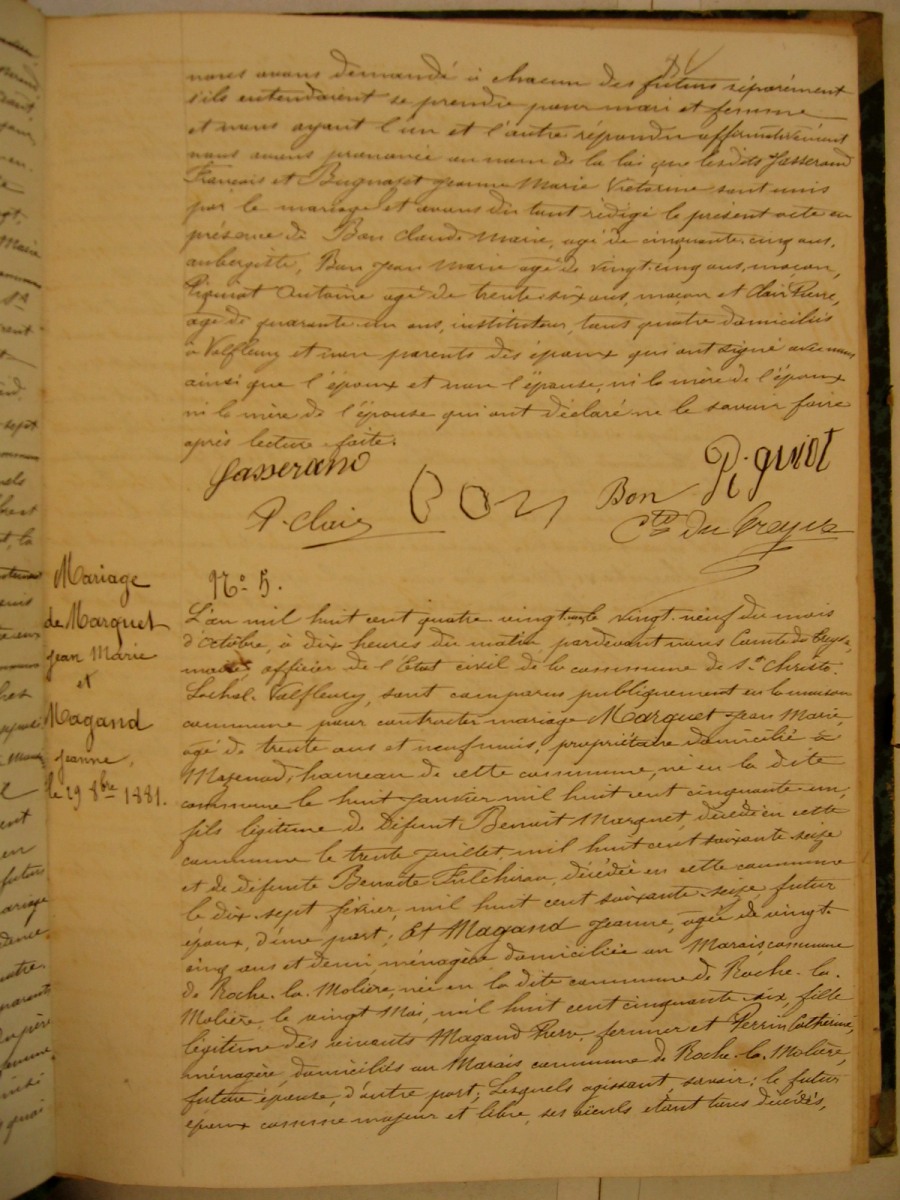 nous avons demandé à chacun des futurs séparément
s'ils entendaient se prendre pour mari et femme
et nous ayant l'un et l'autre répondu affirmativement
nous avons prononcé au nom de la loi que lesdits Jasserand
François et Bugnazet Jeanne Marie Victorine sont unis
par le mariage et avons du tout rédigé le présent acte en
présence de Bon Claude Marie, âgé de cinquante cinq ans,
aubergiste, Bon Jean Marie âgé de vingt cinq ans, maçon,
Piguiot Antoine âgé de trente six ans, maçon et Clair Pierre,
âgé de quarante un ans, instituteur, tous quatre domiciliés
à Valfleury et non parents des époux qui ont signé avec nous
ainsi que l'époux et non l'épouse, ni la mère de l'époux
ni la mère de l'épouse qui ont déclaré ne le savoir faire
après lecture faite.
Jasserand
P. Clair Bon Bon Piguiot
Cte du
Mariage
de Marquet
Jean Marie
et
Magand
Jeanne,
le 29 8bre 1881.
No 5.
L'an mil huit cent quatre vingt un le vingt neuf du mois
d'octobre, à dix heures du matin, pardevant nous Comte du
maire, officier de l'Etat civil de la commune de St Christo-
Lachal-Valfleury, sont comparus publiquement en la maison
commune pour contracter mariage Marquet Jean Marie,
âgé de trente ans et neuf mois, propriétaire domicilié à
Mazenod, hameau de cette commune, né en la dite
commune le huit Janvier mil huit cent cinquante un,
fils légitime de défunt Benoit Marquet, décédé en cette
commune le trente Juillet mil huit cent soixante seize
et de défunte Benoite Fulchiron, décédée en cette commune
le dix sept février, mil huit cent soixante seize futur
époux, d'une part; Et Magand Jeanne, âgée de vingt
cinq ans et demi, ménagère domiciliée au Marais, commune
de Roche-la-Molière, née en la dite commune de Roche-la-
Molière, le vingt Mai, mil huit cent cinquante six, fille
légitime des vivants Magand Pierre, fermier et Perrin Catherine,
ménagère, domiciliés au Marais commune de Roche-la-Molière,
future épouse, d'autre part; Lesquels agissant, savoir: le futur
époux comme majeur et libre, ses aïeuls étant tous décédés,